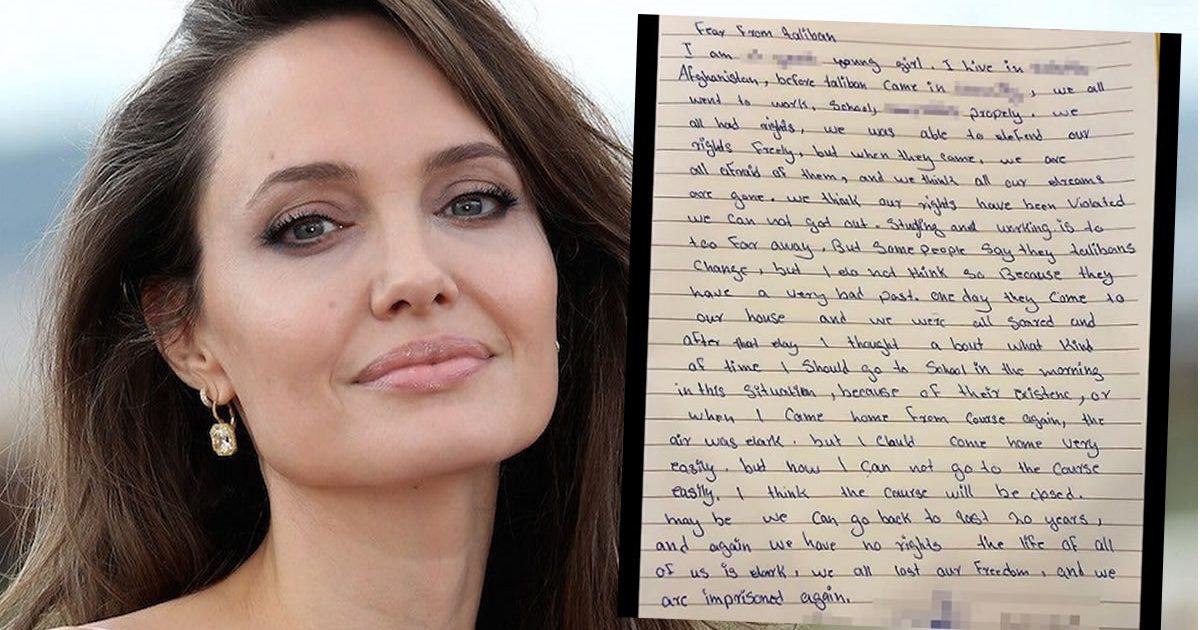 Fear From taliban
I am young girl. I live in
Afghanistan, before taliban came in , we all
went to work, School, propely. we
all had rights, we was able to defend our
rights freely, but when they came, we are
all afraid of them, and we think all our dreams
are gone. we think our rights have been violated
we can not got out. Studing and working is to
too far away. But some people say they talibans
change, but I do not think so Because they
have a very bad past. one day they come to
our house and we were all scared and
after that day I thought a bout what kind
of time I should go to School in the morning
in this situation, because of their existenc, or
when I came home from course again, the
air was dark. but I clould come home very
easily. but now I can not go to the course
easily. I think the course will be closed.
may be we can go back to last 20 years,
and again we have no rights the life of all
of us is dark, we all lost our freedom, and we
are imprisoned again.